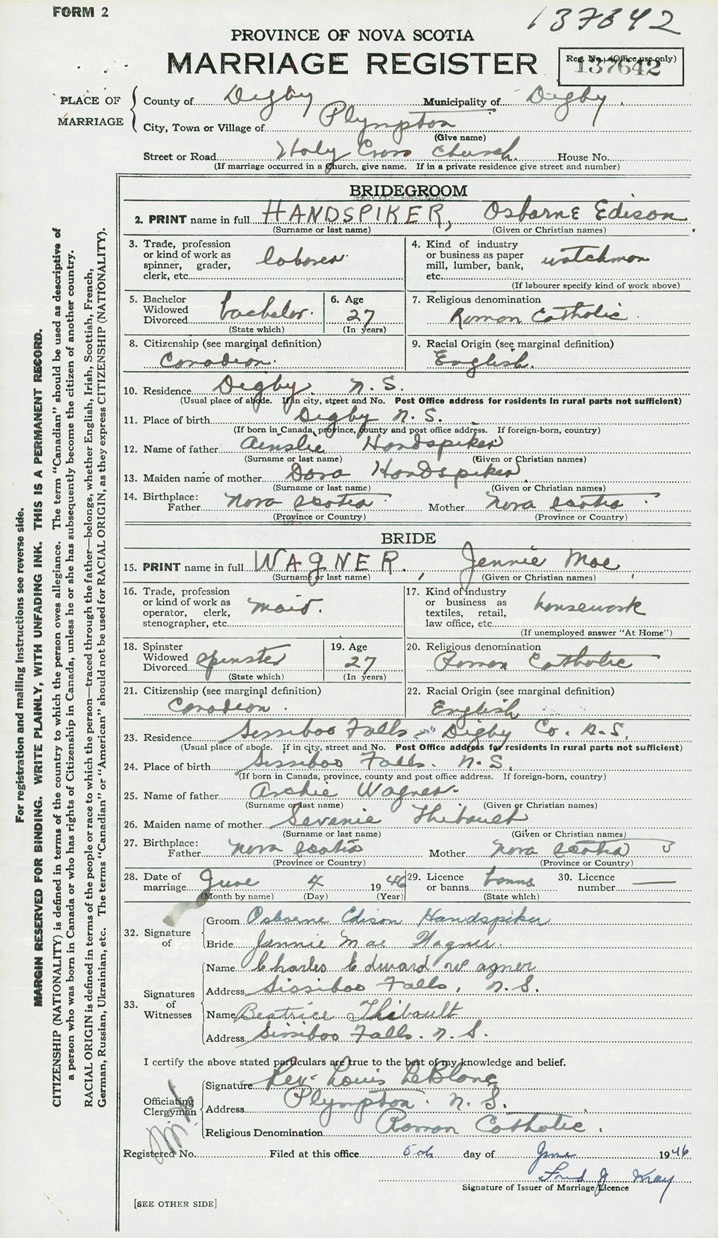 FORM 2
137642
PROVINCE OF NOVA SCOTIA
MARRIAGE REGISTER
Reg. No. (Office use only)
137642
PLACE OF MARRIAGE
County of Digby Municipality of Digby
City, Town or Village of Plympton
(Give name)
Street or Road Holy Cross Church House No.
(If marriage occurred in a church, give name. If in a private residence give street and number)
BRIDEGROOM
2. PRINT name in full HANDSPIKER, Osborne Edison
(Surname or last name) (Given or Christian names)
3. Trade, profession or kind of work as spinner, grader, clerk, etc. laborer
4. Kind of industry or business as paper mill, lumber, bank, etc. watchman
(If labourer specify kind of work above)
5. Bachelor Widowed Divorced bachelor
(State which)
6. Age 27
(In years)
7. Religious denomination
Roman Catholic
8. Citizenship (see marginal definition)
Canadian
9. Racial Origin (see marginal definition)
English
10. Residence Digby N.S.
(Usual place of abode. If in city, street and No. Post Office address for residents in rural parts not sufficient)
11. Place of birth Digby N.S.
(If born in Canada, province, county and post office address. If foreign-born, country)
12. Name of father Ainslie Handspiker
(Surname or last name) (Given or Christian names)
13. Maiden name of mother Dora Handspiker
(Surname or last name) (Given or Christian names)
14. Birthplace: Father Nova Scotia Mother Nova Scotia
(Province or Country) (Province or Country)
BRIDE
15. PRINT name in full WAGNER, Jennie Mae
(Surname or last name) (Given or Christian names)
16. Trade, profession or kind of work as operator, clerk, stenographer, etc. maid
17. Kind of industry or business as textiles, retail, law office, etc. housework
(If unemployed answer "At Home")
18. Spinster Widowed Divorced spinster
(State which)
19. Age 27
(In years)
20. Religious denomination
Roman Catholic
21. Citizenship (see marginal definition)
Canadian
22. Racial Origin (see marginal definition)
English
23. Residence Sissiboo Falls Digby Co. N.S.
(Usual place of abode. If in city, street and No. Post Office address for residents in rural parts not sufficient)
24. Place of birth Sissiboo Falls. N.S.
(If born in Canada, province, county and post office address. If foreign-born, country)
25. Name of father Archie Wagner
(Surname or last name) (Given or Christian names)
26. Maiden name of mother Sevenie Thibault
(Surname or last name) (Given or Christian names)
27. Birthplace: Father Nova Scotia Mother Nova Scotia
(Province or Country) (Province or Country)
28. Date of marriage June 4 1946
(Month by name) (Day) (Year)
29. Licence or banns banns
(State which)
30. Licence number —
32. Signature of
Groom Osborne Edison Handspiker
Bride Jennie Mae Wagner
33. Signatures of Witnesses
Name Charles Edward Wagner
Address Sissiboo Falls, N.S.
Name Beatrice Thibault
Address Sissiboo Falls. N.S.
I certify the above stated particulars are true to the best of my knowledge and belief.
Officiating Clergyman
Signature Rev. Louis LeBlanc
Address Plympton. N.S.
Religious Denomination Roman Catholic.
Registered No. Filed at this office 5th day of June 1946
Signature of Issuer of Marriage Licence
[SEE OTHER SIDE]
For registration and mailing instructions see reverse side.
MARGIN RESERVED FOR BINDING. WRITE PLAINLY, WITH UNFADING INK. THIS IS A PERMANENT RECORD.
CITIZENSHIP (NATIONALITY) is defined in terms of the country to which the person owes allegiance. The term "Canadian" should be used as descriptive of
a person who was born in Canada or who has rights of Citizenship in Canada, unless he or she has subsequently become the citizen of another country.
RACIAL ORIGIN is defined in terms of the people or race to which the person—traced through the father—belongs, whether English, Irish, Scottish, French,
German, Russian, Ukrainian, etc. The terms "Canadian" or "American" should not be used for RACIAL ORIGIN, as they express CITIZENSHIP (NATIONALITY).